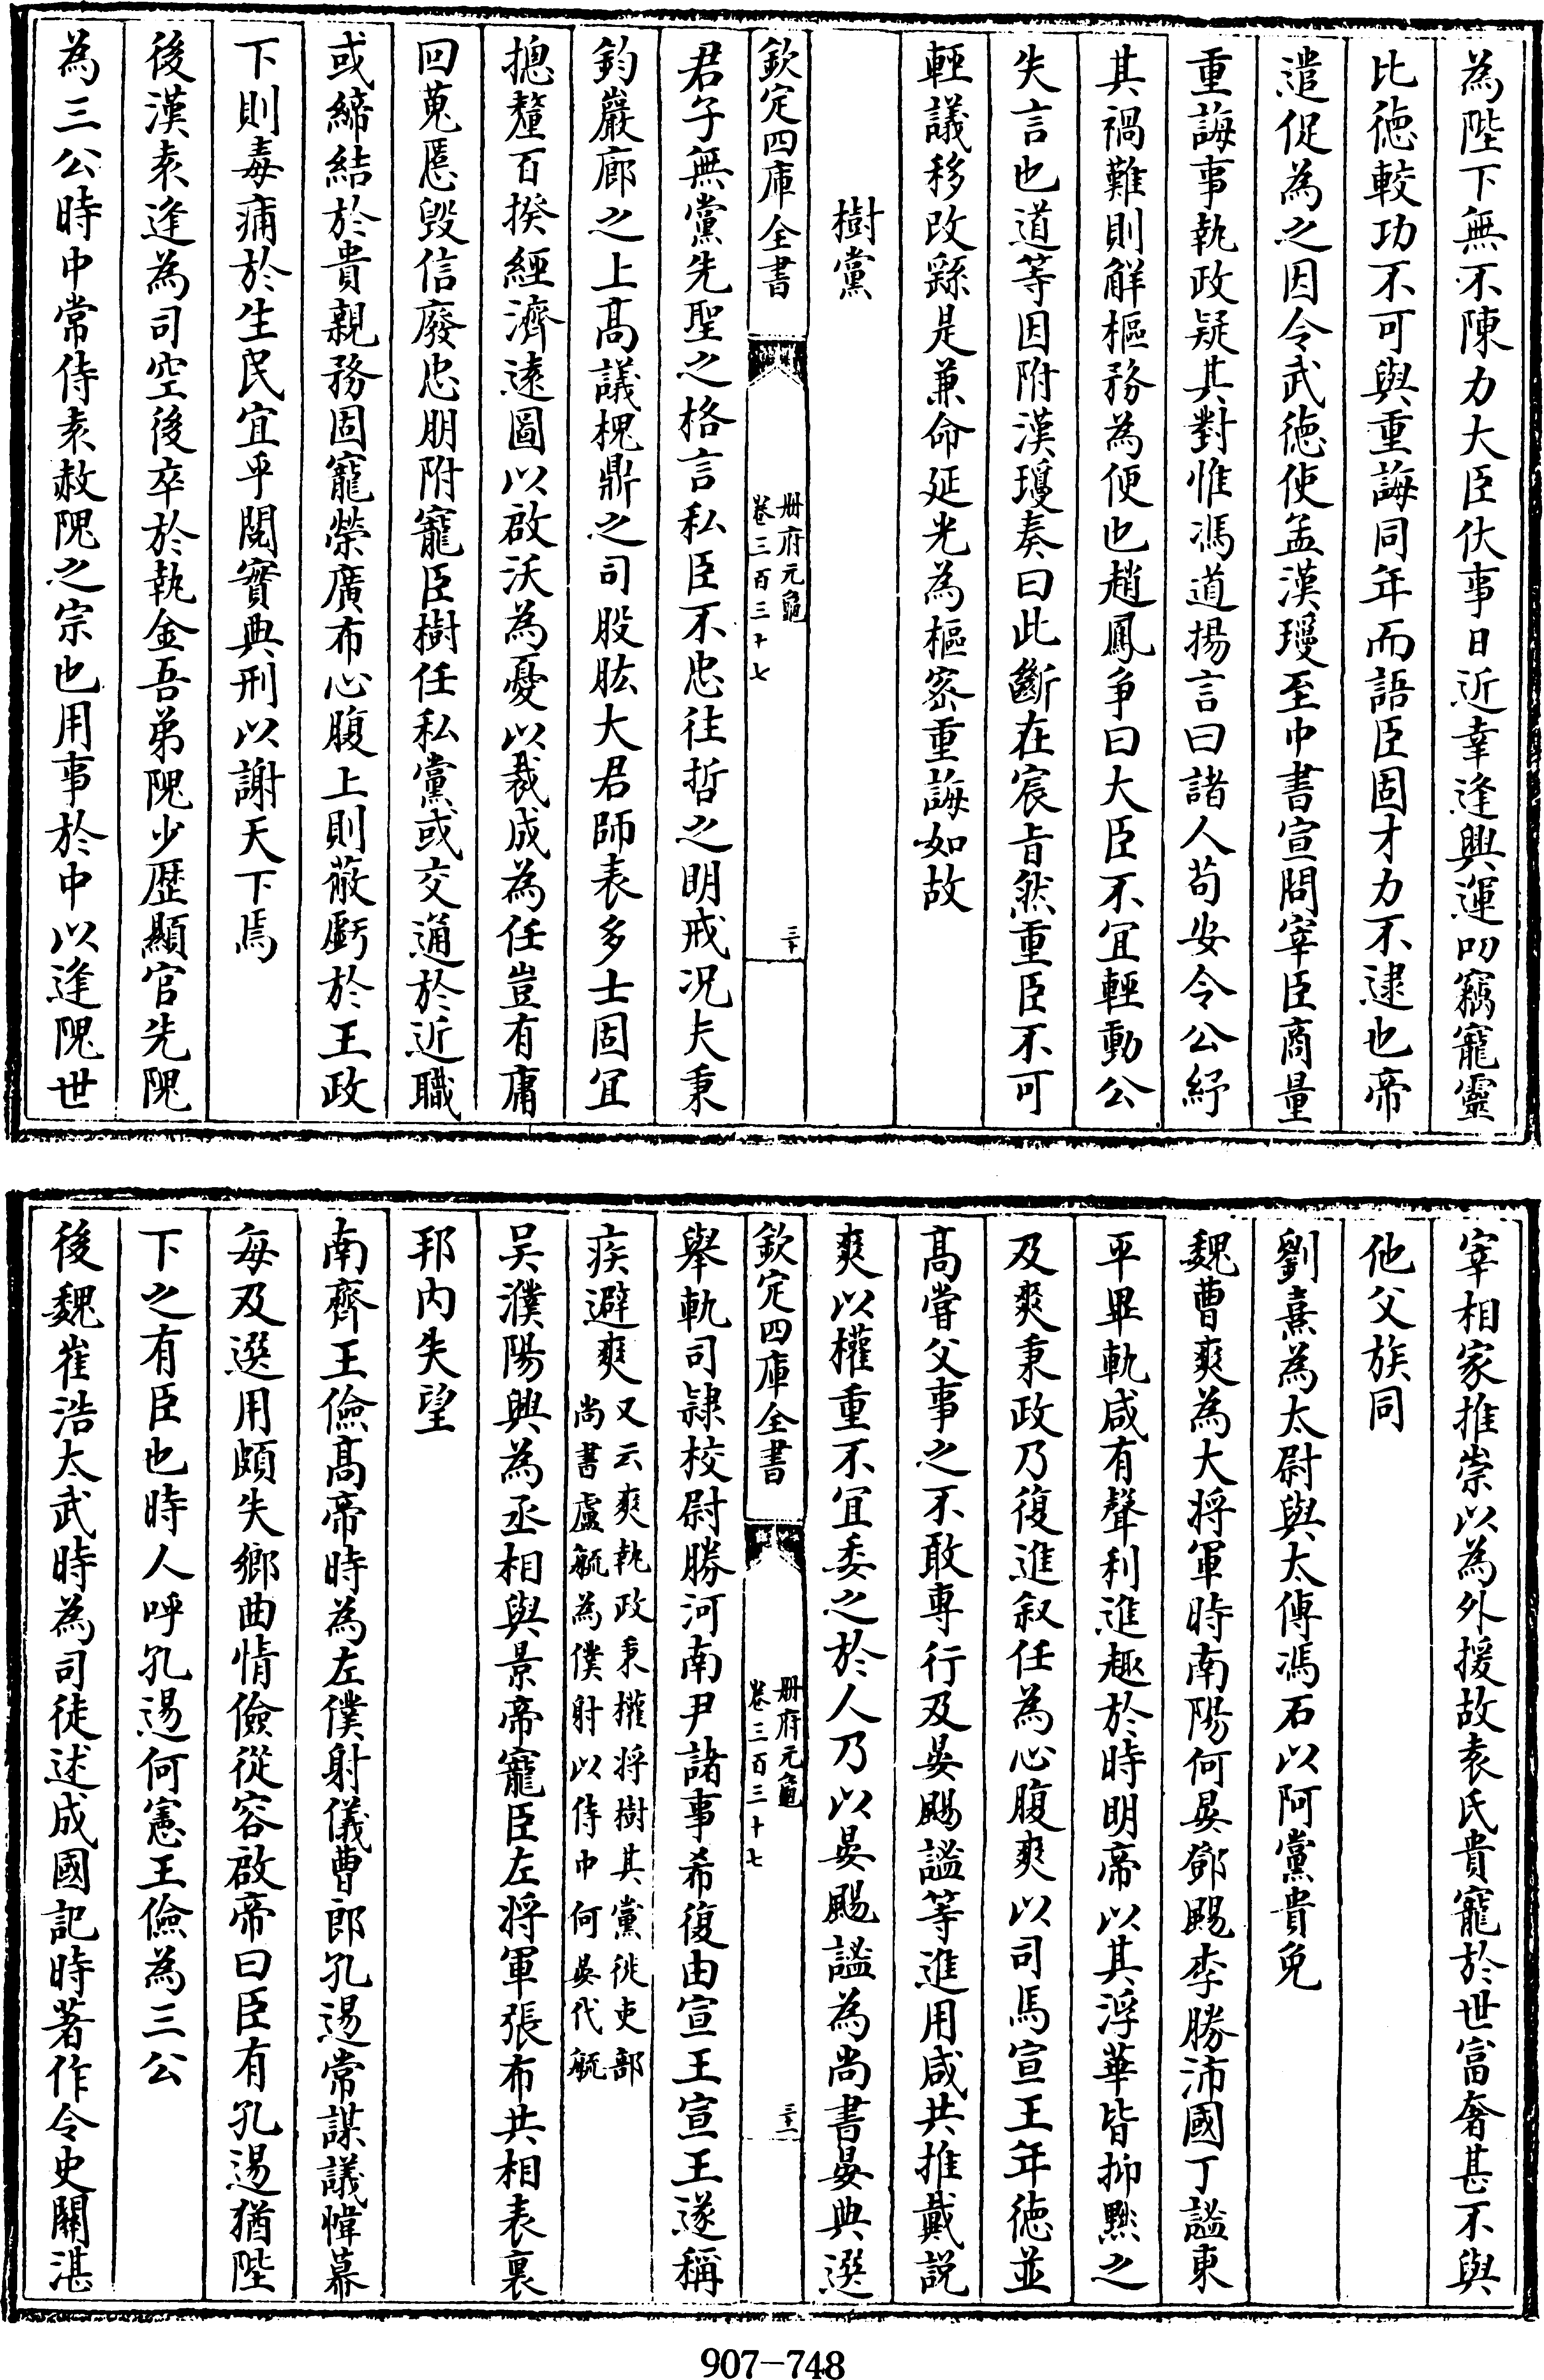 為陛下無不陳力大臣伏事日近幸逢興運叨竊寵靈
比徳較功不可與重誨同年而語臣固才力不逮也帝
遣促為之因令武徳使孟漢瓊至中書宣問宰臣商量
重誨事執政疑其對惟馮道揚言曰諸人苟安令公紓
其禍難則解樞務為便也趙鳳爭曰大臣不宜輕動公
失言也道等因附漢瓊奏曰此斷在宸旨然重臣不可
輕議移改繇是兼命延光為樞密重誨如故
樹黨
欽定四庫全書
冊府元龜
卷三百三十七
三十
君子無黨先聖之格言私臣不忠往哲之明戒況夫秉
鈞巖廊之上高議槐鼎之司股肱大君師表多士固宜
摠釐百揆經濟遠圖以啟沃為憂以裁成為任豈有庸
回蒐慝毀信廢忠朋附寵臣樹任私黨或交通於近職
或締結於貴親務固寵榮廣布心腹上則蔽虧於王政
下則毒痡於生民宜乎閱實典刑以謝天下焉
後漢袁逢為司空後卒於執金吾弟隗少歴顯官先隗
為三公時中常侍袁赦隗之宗也用事於中以逢隗世
宰相家推崇以為外援故袁氏貴寵於世富奢甚不與
他父族同
劉熹為太尉與太傅馮石以阿黨貴免
魏曹爽為大將軍時南陽何晏鄧颺李勝沛國丁謐東
平畢軌咸有聲利進趣於時明帝以其浮華皆抑黜之
及爽秉政乃復進叙任為心腹爽以司馬宣王年徳並
高嘗父事之不敢專行及晏颺謐等進用咸共推戴説
爽以權重不宜委之於人乃以晏颺謐為尚書晏典選
欽定四庫全書
冊府元龜
卷三百三十七
三十一
舉軌司隷校尉勝河南尹諸事希復由宣王宣王遂稱
疾避爽
又云爽執政秉權將樹其黨徙吏部
尚書盧毓為僕射以侍中何晏代毓
吴濮陽興為丞相與景帝寵臣左將軍張布共相表裏
邦内失望
南齊王儉高帝時為左僕射儀曹郎孔逷常謀議幃幕
每及選用頗失鄉曲情儉從容啟帝曰臣有孔逷猶陛
下之有臣也時人呼孔逷何憲王儉為三公
後魏崔浩太武時為司徒述成國記時著作令史閔湛
907-748